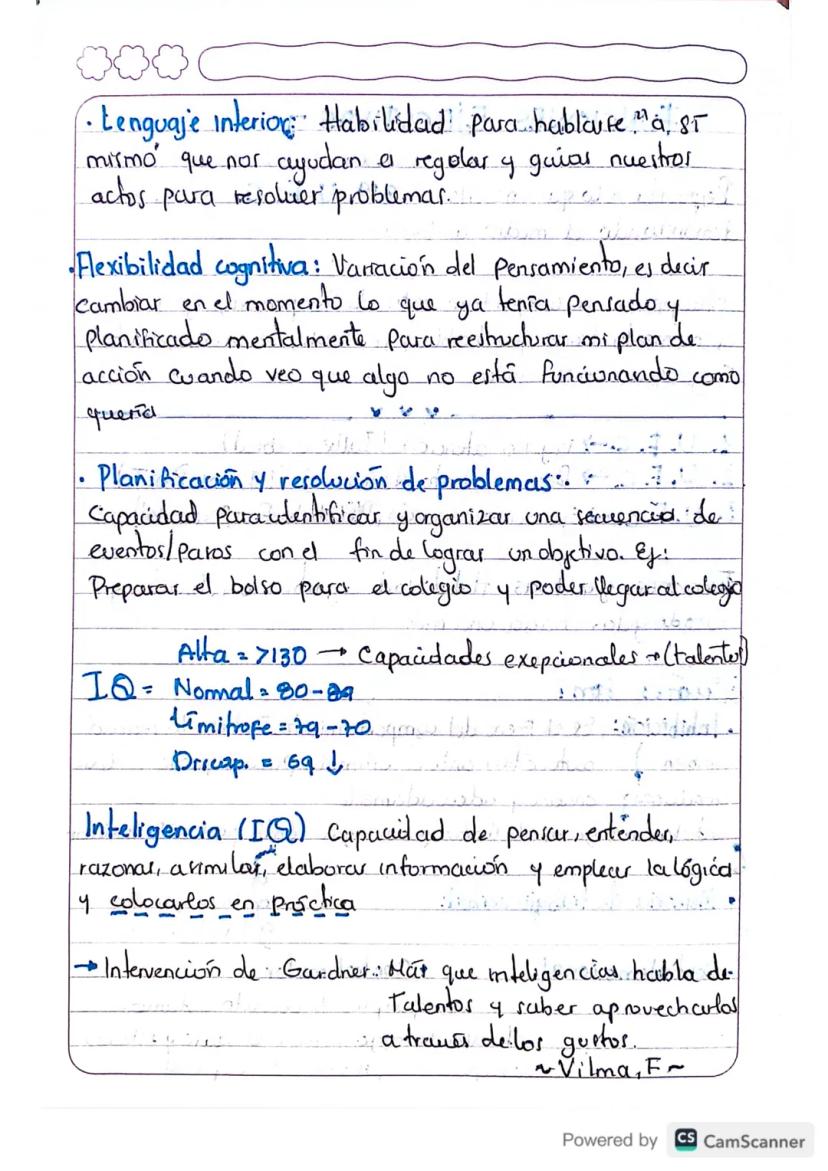 · Lenguaje interior: Habilidad para hablarse "a sí
mismo" que nos ayudan a regular y guiar nuestros
actos para resolver problemas.
· Flexibilidad cognitiva: Variación del pensamiento, es decir
cambiar en el momento lo que ya tenía pensado y
planificado mentalmente para reestructurar mi plan de
acción cuando veo que algo no está funcionando como
quería
· Planificación y resolución de problemas:
Capacidad para identificar y organizar una secuencia de
eventos/pasos con el fin de lograr un objetivo. Ej:
Preparar el bolso para el colegio y poder llegar al colegio
Alta = >130 → Capacidades exepcionales → (talentos)
IQ = Normal = 80-89
Límitrofe = 79-70
Discap. = 69 ↓
Inteligencia (IQ) Capacidad de pensar, entender,
razonar, asimilar, elaborar información y emplear la lógica
y colocarlos en práctica
→ Intervención de Gardner: Más que inteligencias habla de
Talentos y saber aprovecharlos
a través de los gustos.
~Vilma, F~
Powered by CS CamScanner